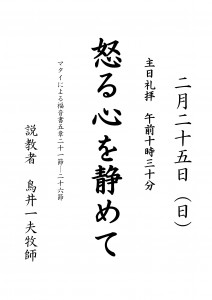 二月二十五日（日）
主日礼拝　午前十時三十分
怒る心を静めて
マタイによる福音書五章二十一節―二十六節
説教者　鳥井一夫牧師